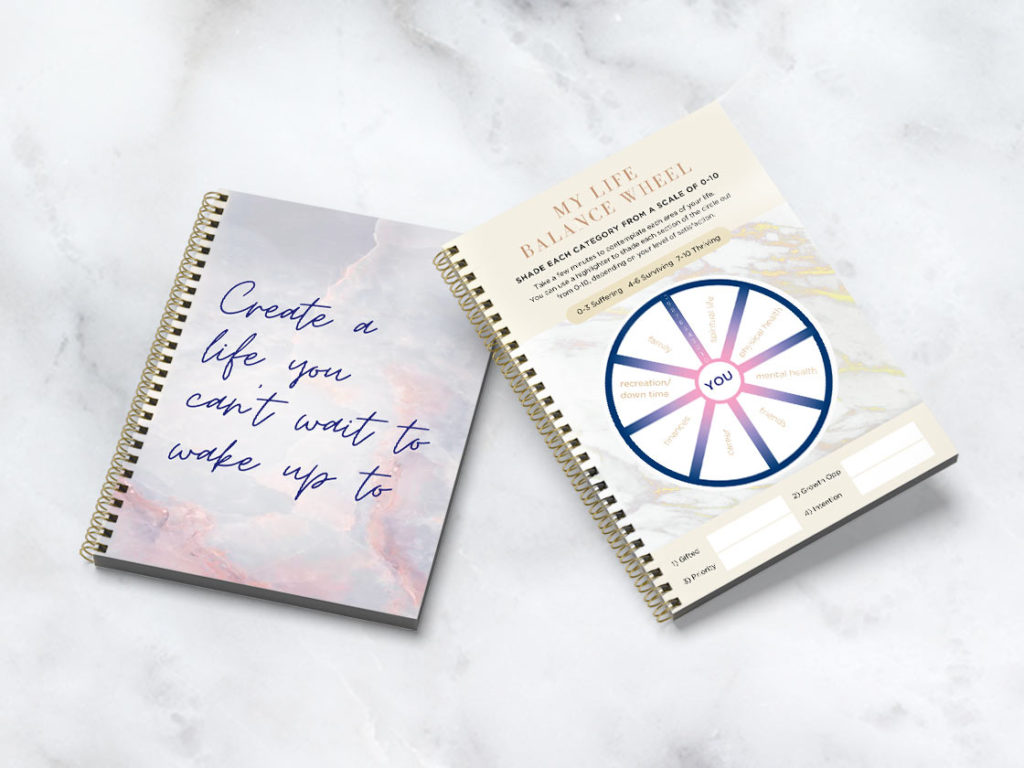 Create a
life you
can't wait to
wake up to
MY LIFE
BALANCE WHEEL
SHADE EACH CATEGORY FROM A SCALE OF 0-10
Take a few minutes to contemplate each area of your life.
You can use a highlighter to shade each section of the circle out
from 0-10, depending on your level of satisfaction.
0-3 Suffering 4-6 Surviving 7-10 Thriving
family
spiritual life
physical health
recreation/
down time
YOU
mental health
finances
career
friends
1) Gifted
2) Growth Opp
3) Priority
4) Intention